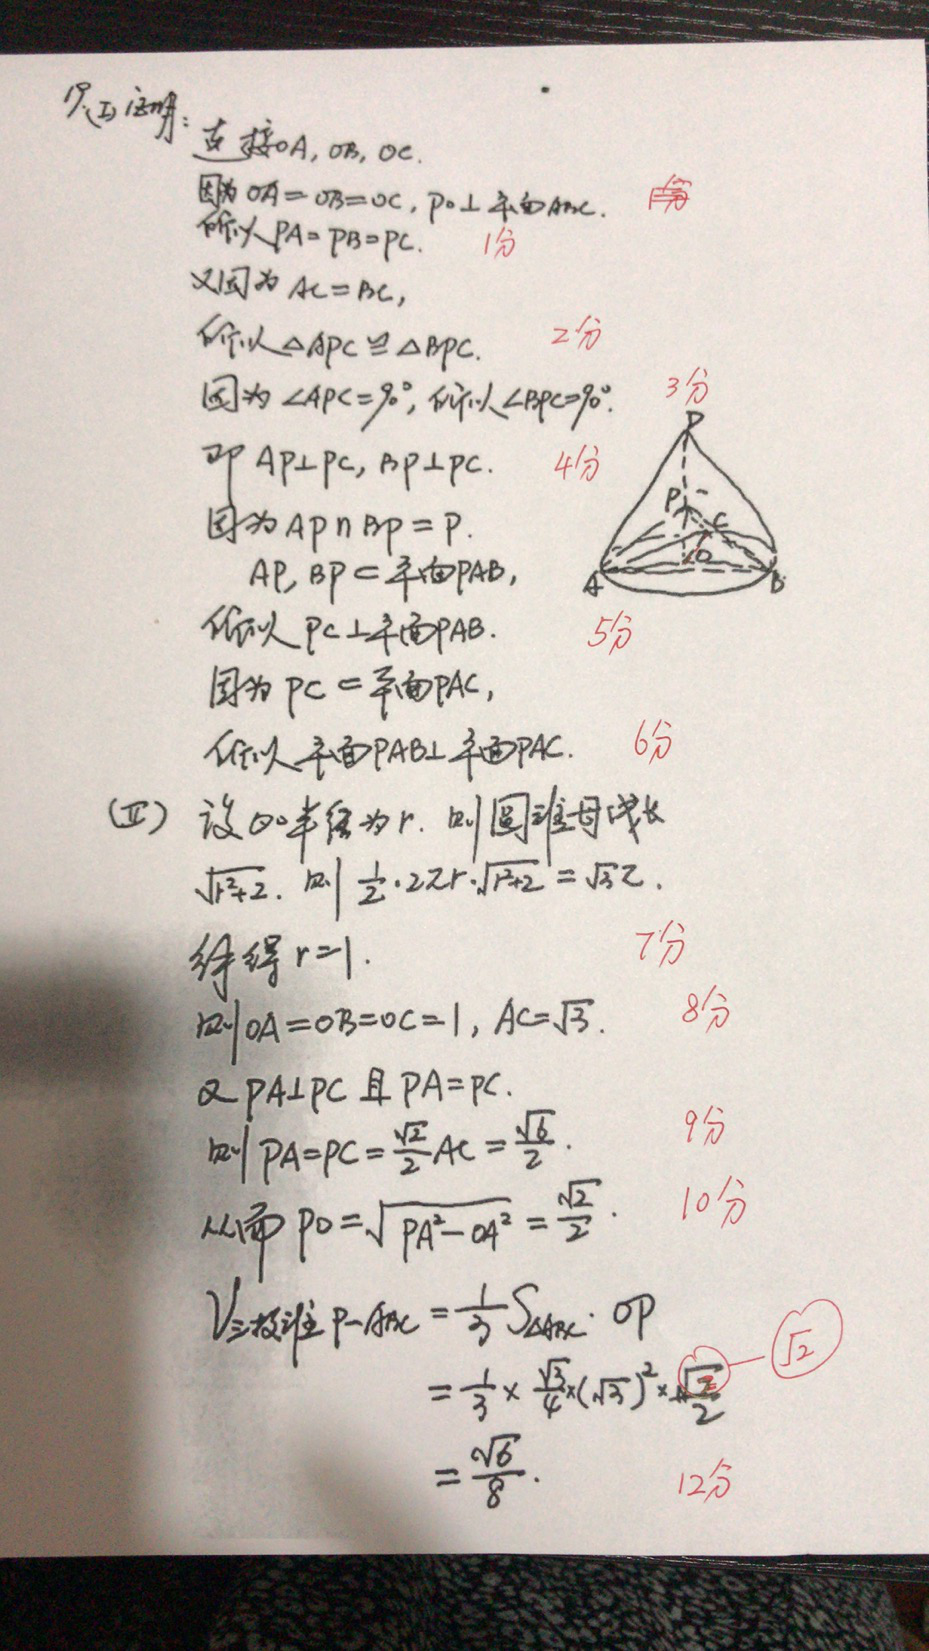 19.(I)证明:
连接OA, OB, OC.
因为 OA=OB=OC, PO⊥平面ABC.
所以 PA=PB=PC. 1分
又因为 AC=BC,
所以 △APC≌△BPC. 2分
因为 ∠APC=90°, 所以 ∠BPC=90°. 3分
即 AP⊥PC, BP⊥PC. 4分
因为 AP∩BP=P.
AP, BP⊂平面PAB,
所以 PC⊥平面PAB. 5分
因为 PC⊂平面PAC,
所以 平面PAB⊥平面PAC. 6分
D
P
C
O
A
B
(Ⅱ) 设⊙O半径为r. 则圆锥母线长
√(r²+2). 则 1/2·2πr·√(r²+2)=√3π.
解得 r=1. 7分
则 OA=OB=OC=1, AC=√3. 8分
又 PA⊥PC 且 PA=PC.
则 PA=PC=√2/2 AC=√6/2. 9分
从而 PO=√(PA²-OA²)=√2/2. 10分
V三棱锥P-ABC=1/3 S△ABC·OP
=1/3×√3/4×(√3)²×√2/2 √2
=√6/8. 12分